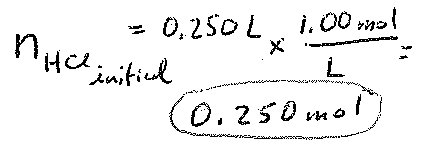 n HCl initial = 0.250 L × 1.00 mol / L =
0.250 mol